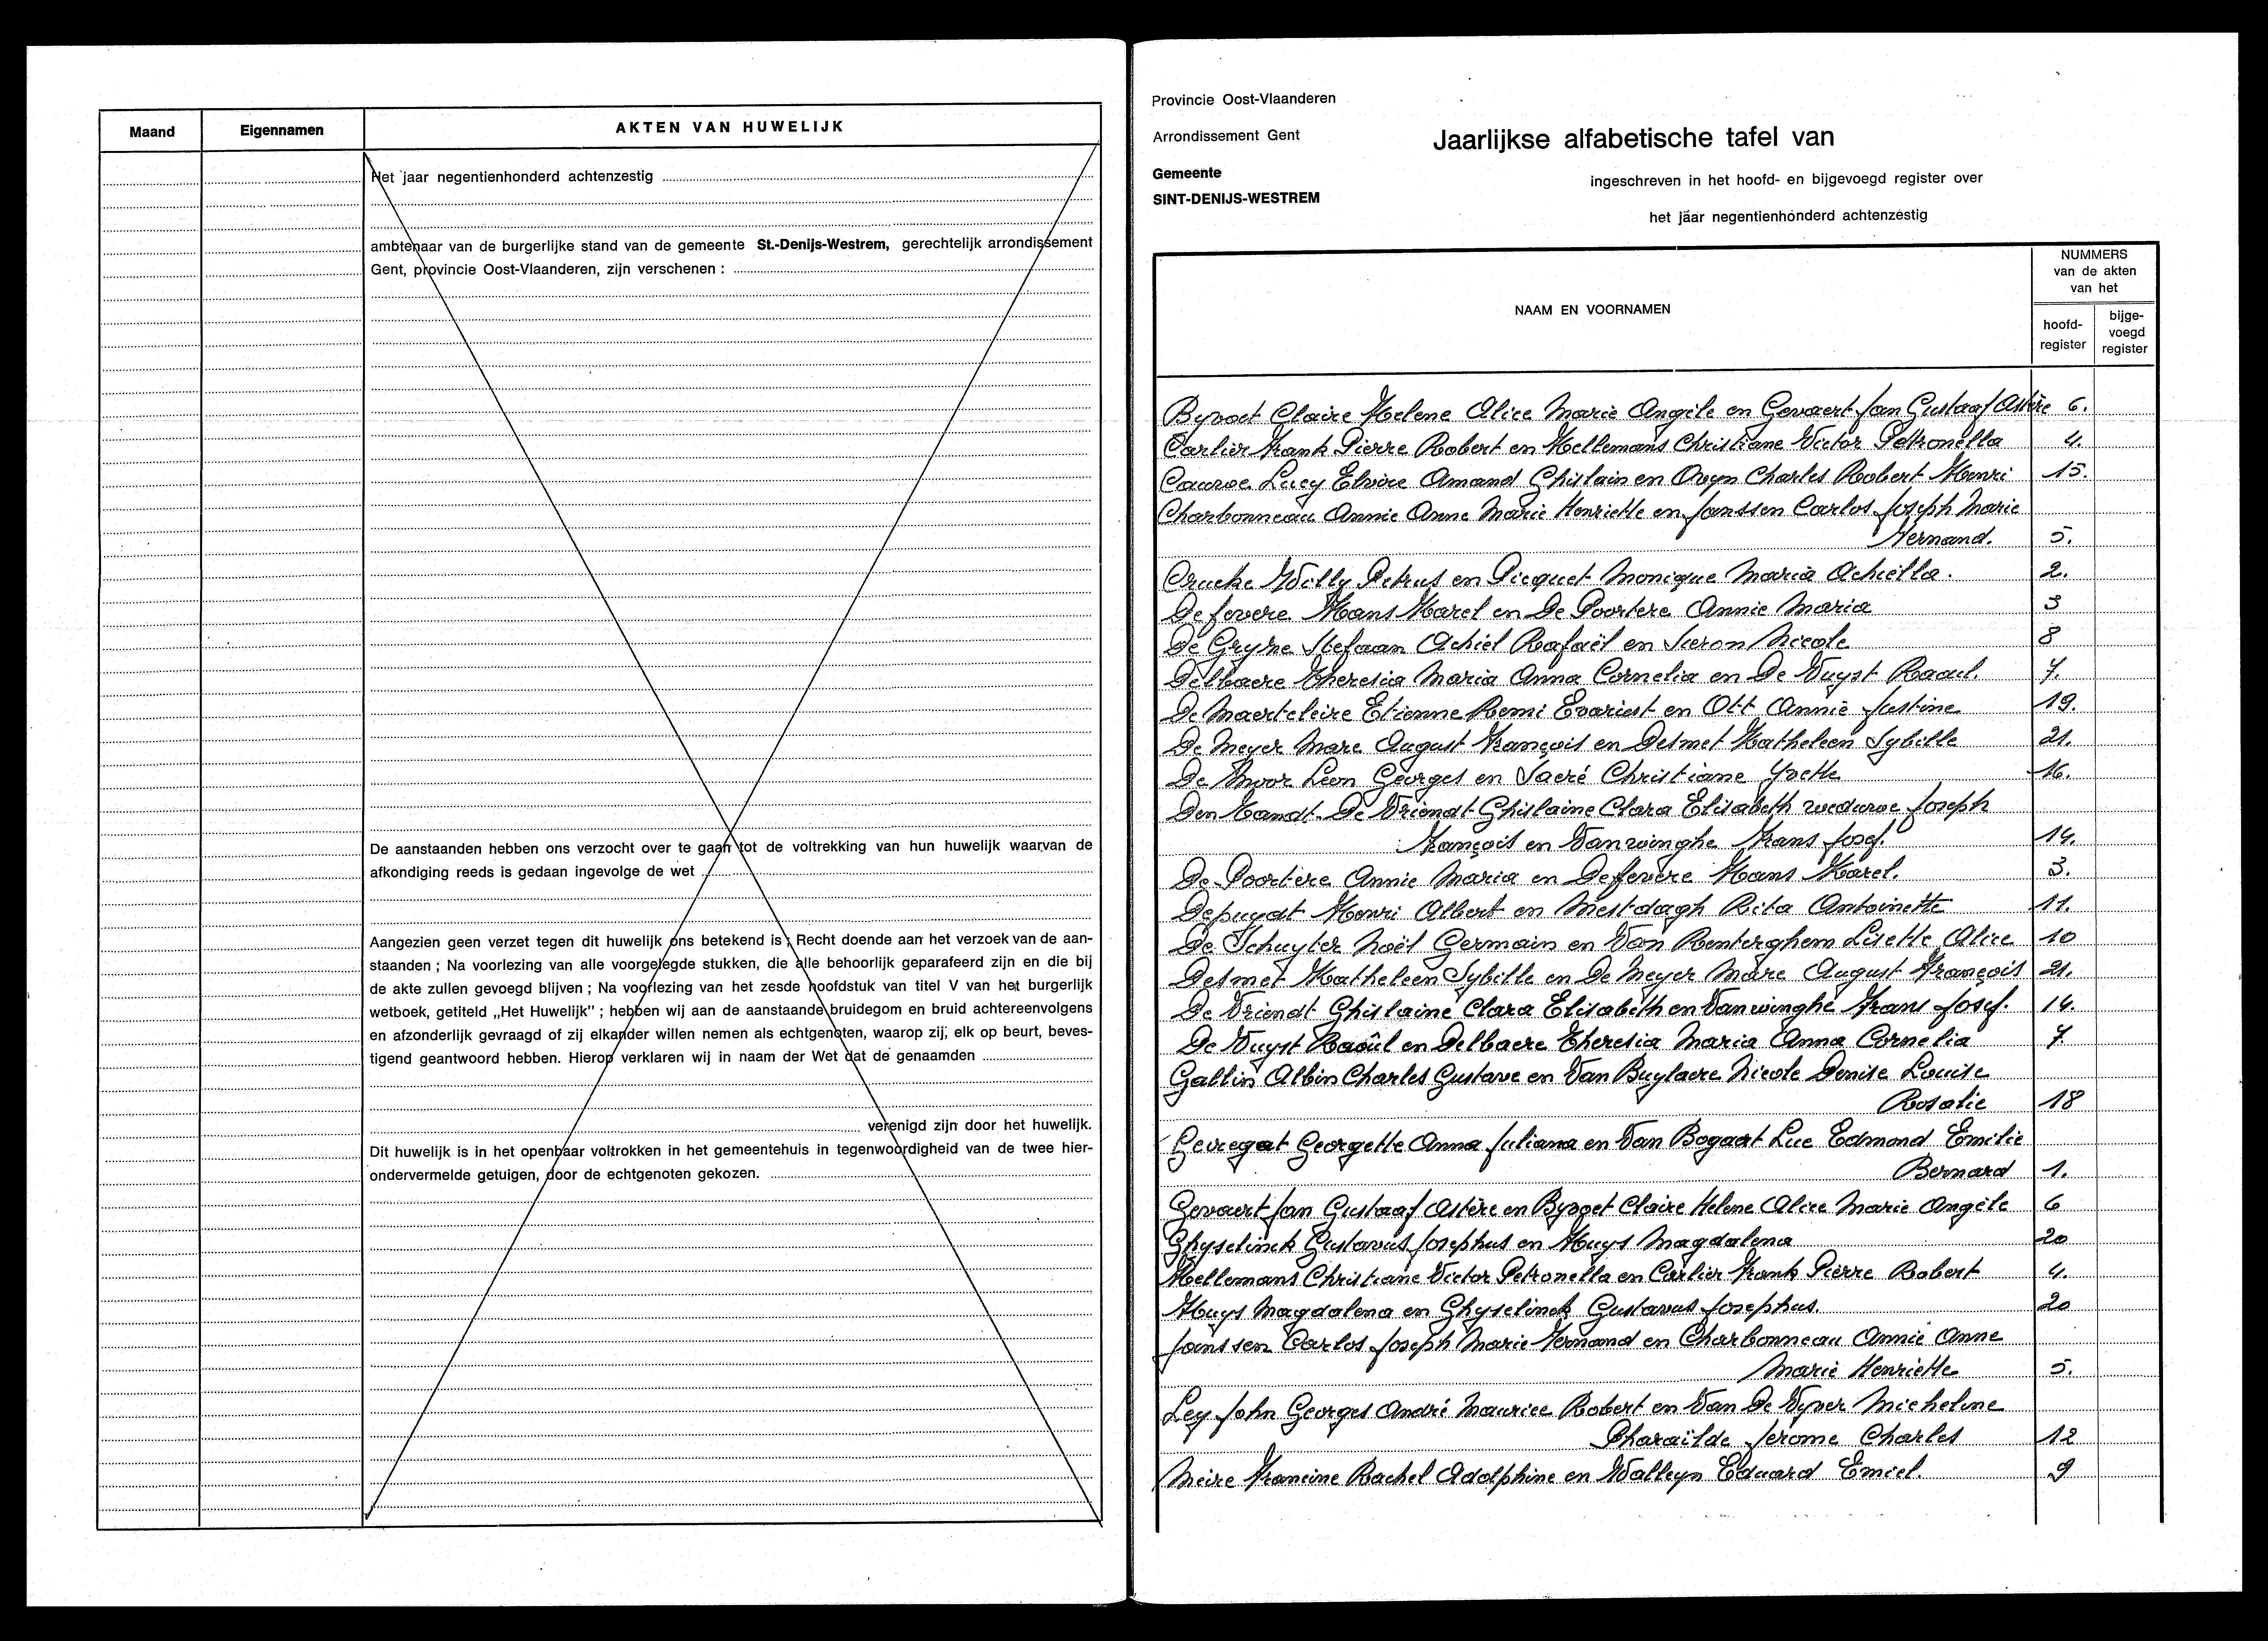 Maand
Eigennamen
AKTEN VAN HUWELIJK
Het jaar negentienhonderd achtenzestig
ambtenaar van de burgerlijke stand van de gemeente St.-Denijs-Westrem, gerechtelijk arrondissement
Gent, provincie Oost-Vlaanderen, zijn verschenen :
De aanstaanden hebben ons verzocht over te gaan tot de voltrekking van hun huwelijk waarvan de
afkondiging reeds is gedaan ingevolge de wet
Aangezien geen verzet tegen dit huwelijk ons betekend is ; Recht doende aan het verzoek van de aan-
staanden ; Na voorlezing van alle voorgelegde stukken, die alle behoorlijk geparafeerd zijn en die bij
de akte zullen gevoegd blijven ; Na voorlezing van het zesde hoofdstuk van titel V van het burgerlijk
wetboek, getiteld „Het Huwelijk” ; hebben wij aan de aanstaande bruidegom en bruid achtereenvolgens
en afzonderlijk gevraagd of zij elkander willen nemen als echtgenoten, waarop zij, elk op beurt, beves-
tigend geantwoord hebben. Hierop verklaren wij in naam der Wet dat de genaamden
verenigd zijn door het huwelijk.
Dit huwelijk is in het openbaar voltrokken in het gemeentehuis in tegenwoordigheid van de twee hier-
ondervermelde getuigen, door de echtgenoten gekozen.
Provincie Oost-Vlaanderen
Arrondissement Gent
Gemeente
SINT-DENIJS-WESTREM
Jaarlijkse alfabetische tafel van
ingeschreven in het hoofd- en bijgevoegd register over
het jaar negentienhonderd achtenzestig
NAAM EN VOORNAMEN
NUMMERS
van de akten
van het
hoofd-
register
bijge-
voegd
register
Byvoet Claire Helene Alice Marie Angèle en Gevaert Jan Gustaaf Astère 6.
Carlier Frank Pierre Robert en Hellemans Christiane Victor Petronella 4.
Cauwe Lucy Elvire Amand Ghislain en Ovyn Charles Robert Henri 15.
Charbonneau Annie Anne Marie Henriette en Janssen Carlos Joseph Marie
Fernand. 5.
Crucke Willy Petrus en Picquet Monique Maria Achiella. 2.
De fevere Hans Karel en De Poortere Annie Maria 3
De Gryse Stefaan Achiel Rafaël en Sieron Nicole 8
Delbaere Theresia Maria Anna Cornelia en De Vuyst Raoul. 7.
De Maerteleire Etienne Remi Evarist en Ott Annie Justine 19.
De Meyer Marc August François en Desmet Katheleen Sybille 21.
De Moor Leon Georges en Sacré Christiane Yvette 16.
Den Handt-De Vriendt Ghislaine Clara Elisabeth weduwe Joseph
François en Vanwinghe Frans Josef. 14.
De Poortere Annie Maria en Deffevere Hans Karel. 3.
Depuydt Henri Albert en Mestdagh Rita Antoinette 11.
De Schuyter Noël Germain en Van Renterghem Lisette Alice 10
Desmet Katheleen Sybille en De Meyer Marc August François 21.
De Vriendt Ghislaine Clara Elisabeth en Vanwinghe Frans Josef. 14.
De Vuyst Raoûl en Delbaere Theresia Maria Anna Cornelia 7.
Gallin Albin Charles Gustave en Van Buylaere Nicole Denise Louise
Rosalie 18
Gevregat Georgette Anna Juliana en Van Bogaert Luc Edmond Emilie
Bernard 1.
Gevaert Jan Gustaaf Astère en Byvoet Claire Helene Alice Marie Angèle 6
Ghyselinck Gustavus Josephus en Huys Magdalena 20
Hellemans Christiane Victor Petronella en Carlier Frank Pierre Robert 4.
Huys Magdalena en Ghyselinck Gustavus Josephus. 20
Janssen Carlos Joseph Marie Fernand en Charbonneau Annie Anne
Marie Henriette 5.
Ley John Georges André Maurice Robert en Van De Vyver Micheline
Pharaïlde Jerome Charles 12
Meire Francine Rachel Adolphine en Walleyn Eduard Emiel. 9